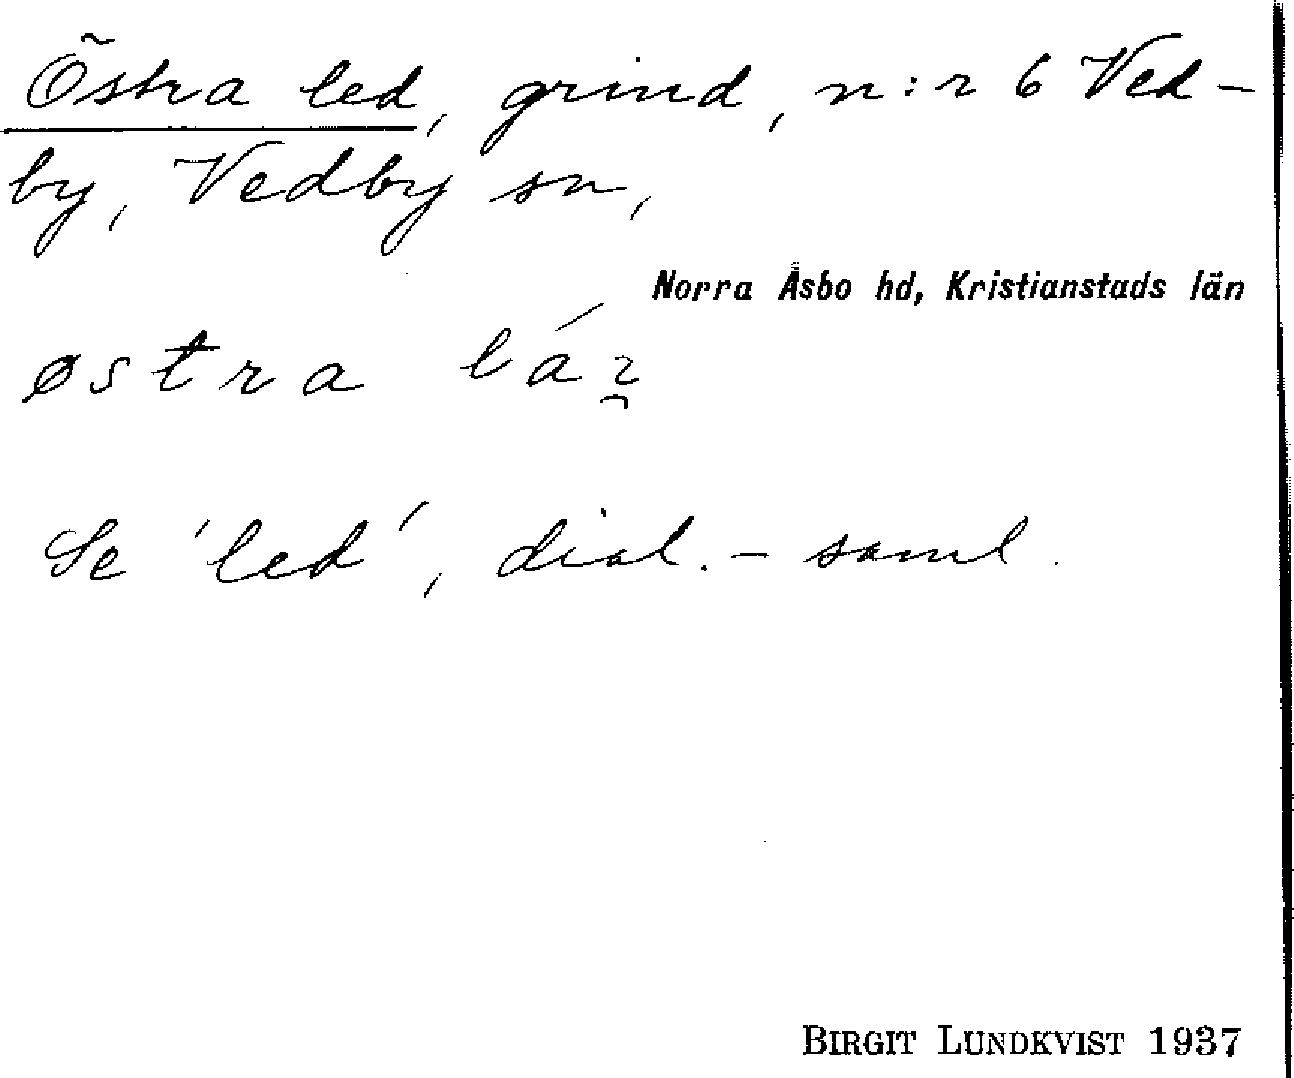 Östra led, grind, n:r 6 Ved-
by, Vedby sn,
Norra Åsbo hd, Kristianstads län
østra
Se 'led', dial.-saml.
BIRGIT LUNDKVIST 1937